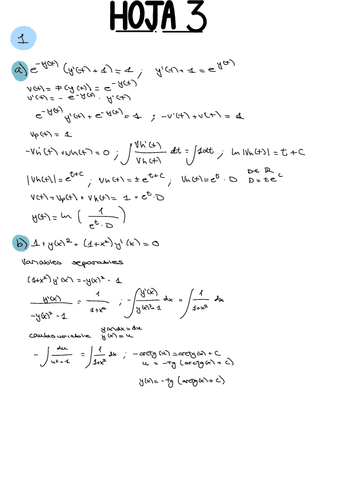 HOJA 3
1
a) e^-y(t) (y'(t)+1)=1 ; y'(t)+1 = e^y(t)
v(t) = P(y(t)) = e^-y(t)
v'(t) = -e^-y(t) · y'(t)
e^-y(t) y'(t) + e^-y(t) = 1 ; -v'(t) + v(t) = 1
vp(t) = 1
-vh'(t) + vh(t) = 0 ; ∫ vh'(t)/vh(t) dt = ∫ 1dt ; ln|vh(t)| = t + C
|vh(t)| = e^t+C ; vh(t) = ± e^t+C ; vh(t) = e^t · D D∈ℝ D = ±e^C
v(t) = vp(t) + vh(t) = 1 + e^t · D
y(t) = ln (1/e^t · D)
b) 1 + y(x)² + (1+x²) y'(x) = 0
variables separables
(1+x²) y'(x) = -y(x)² - 1
y'(x)/-y(x)² - 1 = 1/1+x² ; -∫ y'(x)/y(x)²+1 dx = ∫ 1/1+x² dx
cambio variable y'(x)dx = du y(x) = u
-∫ du/u²+1 = ∫ 1/1+x² dx ; -arctg(x) = arctg(x) + C
u = -tg (arctg(x) + C)
y(x) = -tg (arctg(x) + C)